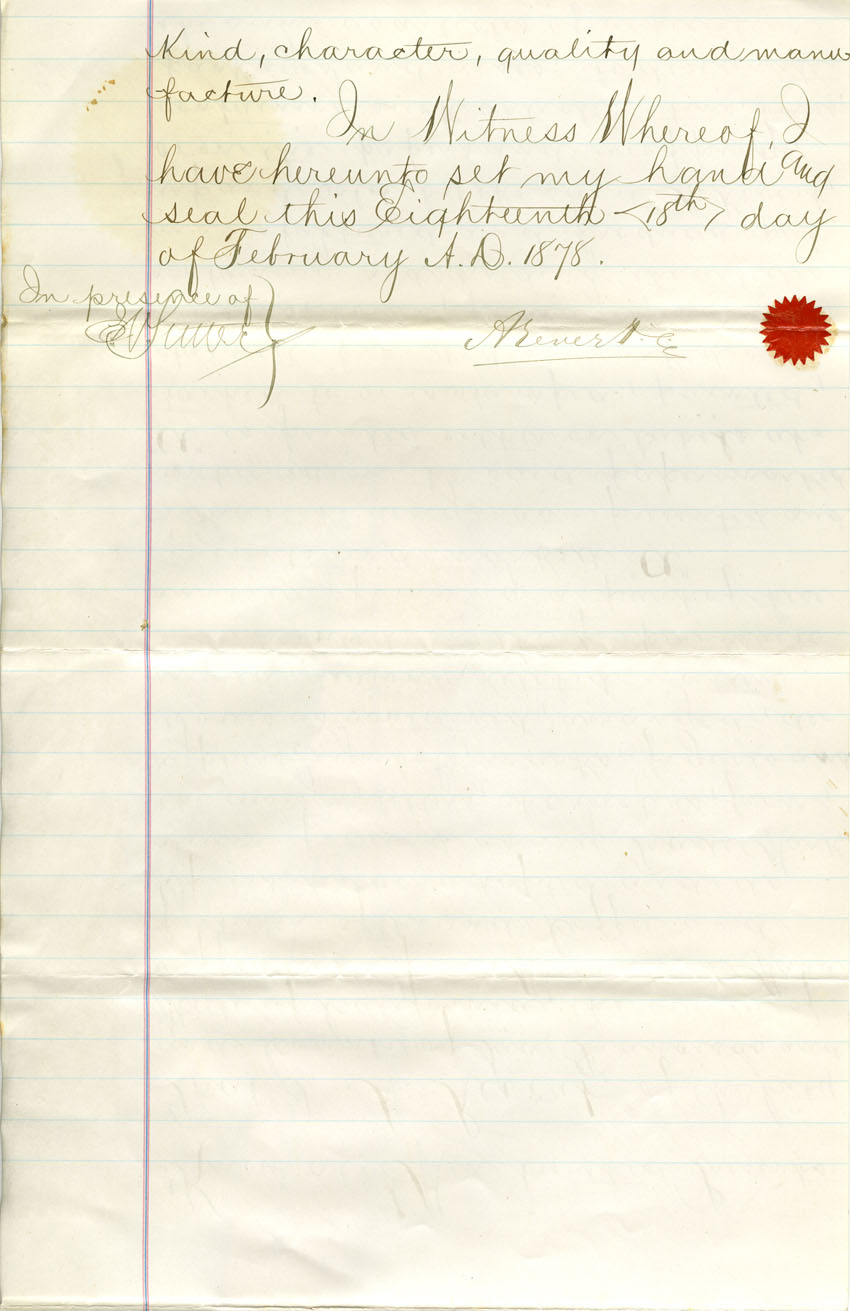 Kind, character, quality and manu
facture.
In Witness Whereof, I
have hereunto set my hand and
seal this Eighteenth (18th) day
of February A.D. 1878.
In presence of